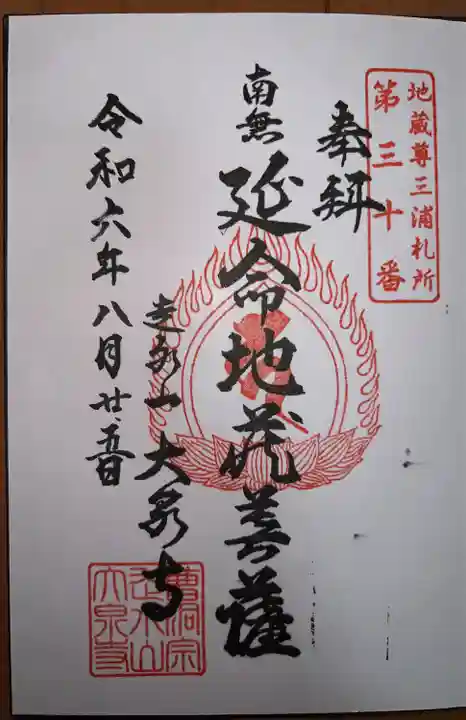 地蔵尊三浦札所
第三十番
奉拝
南無
延命地蔵菩薩
大泉寺
令和六年八月廿五日
曹洞宗
大泉寺